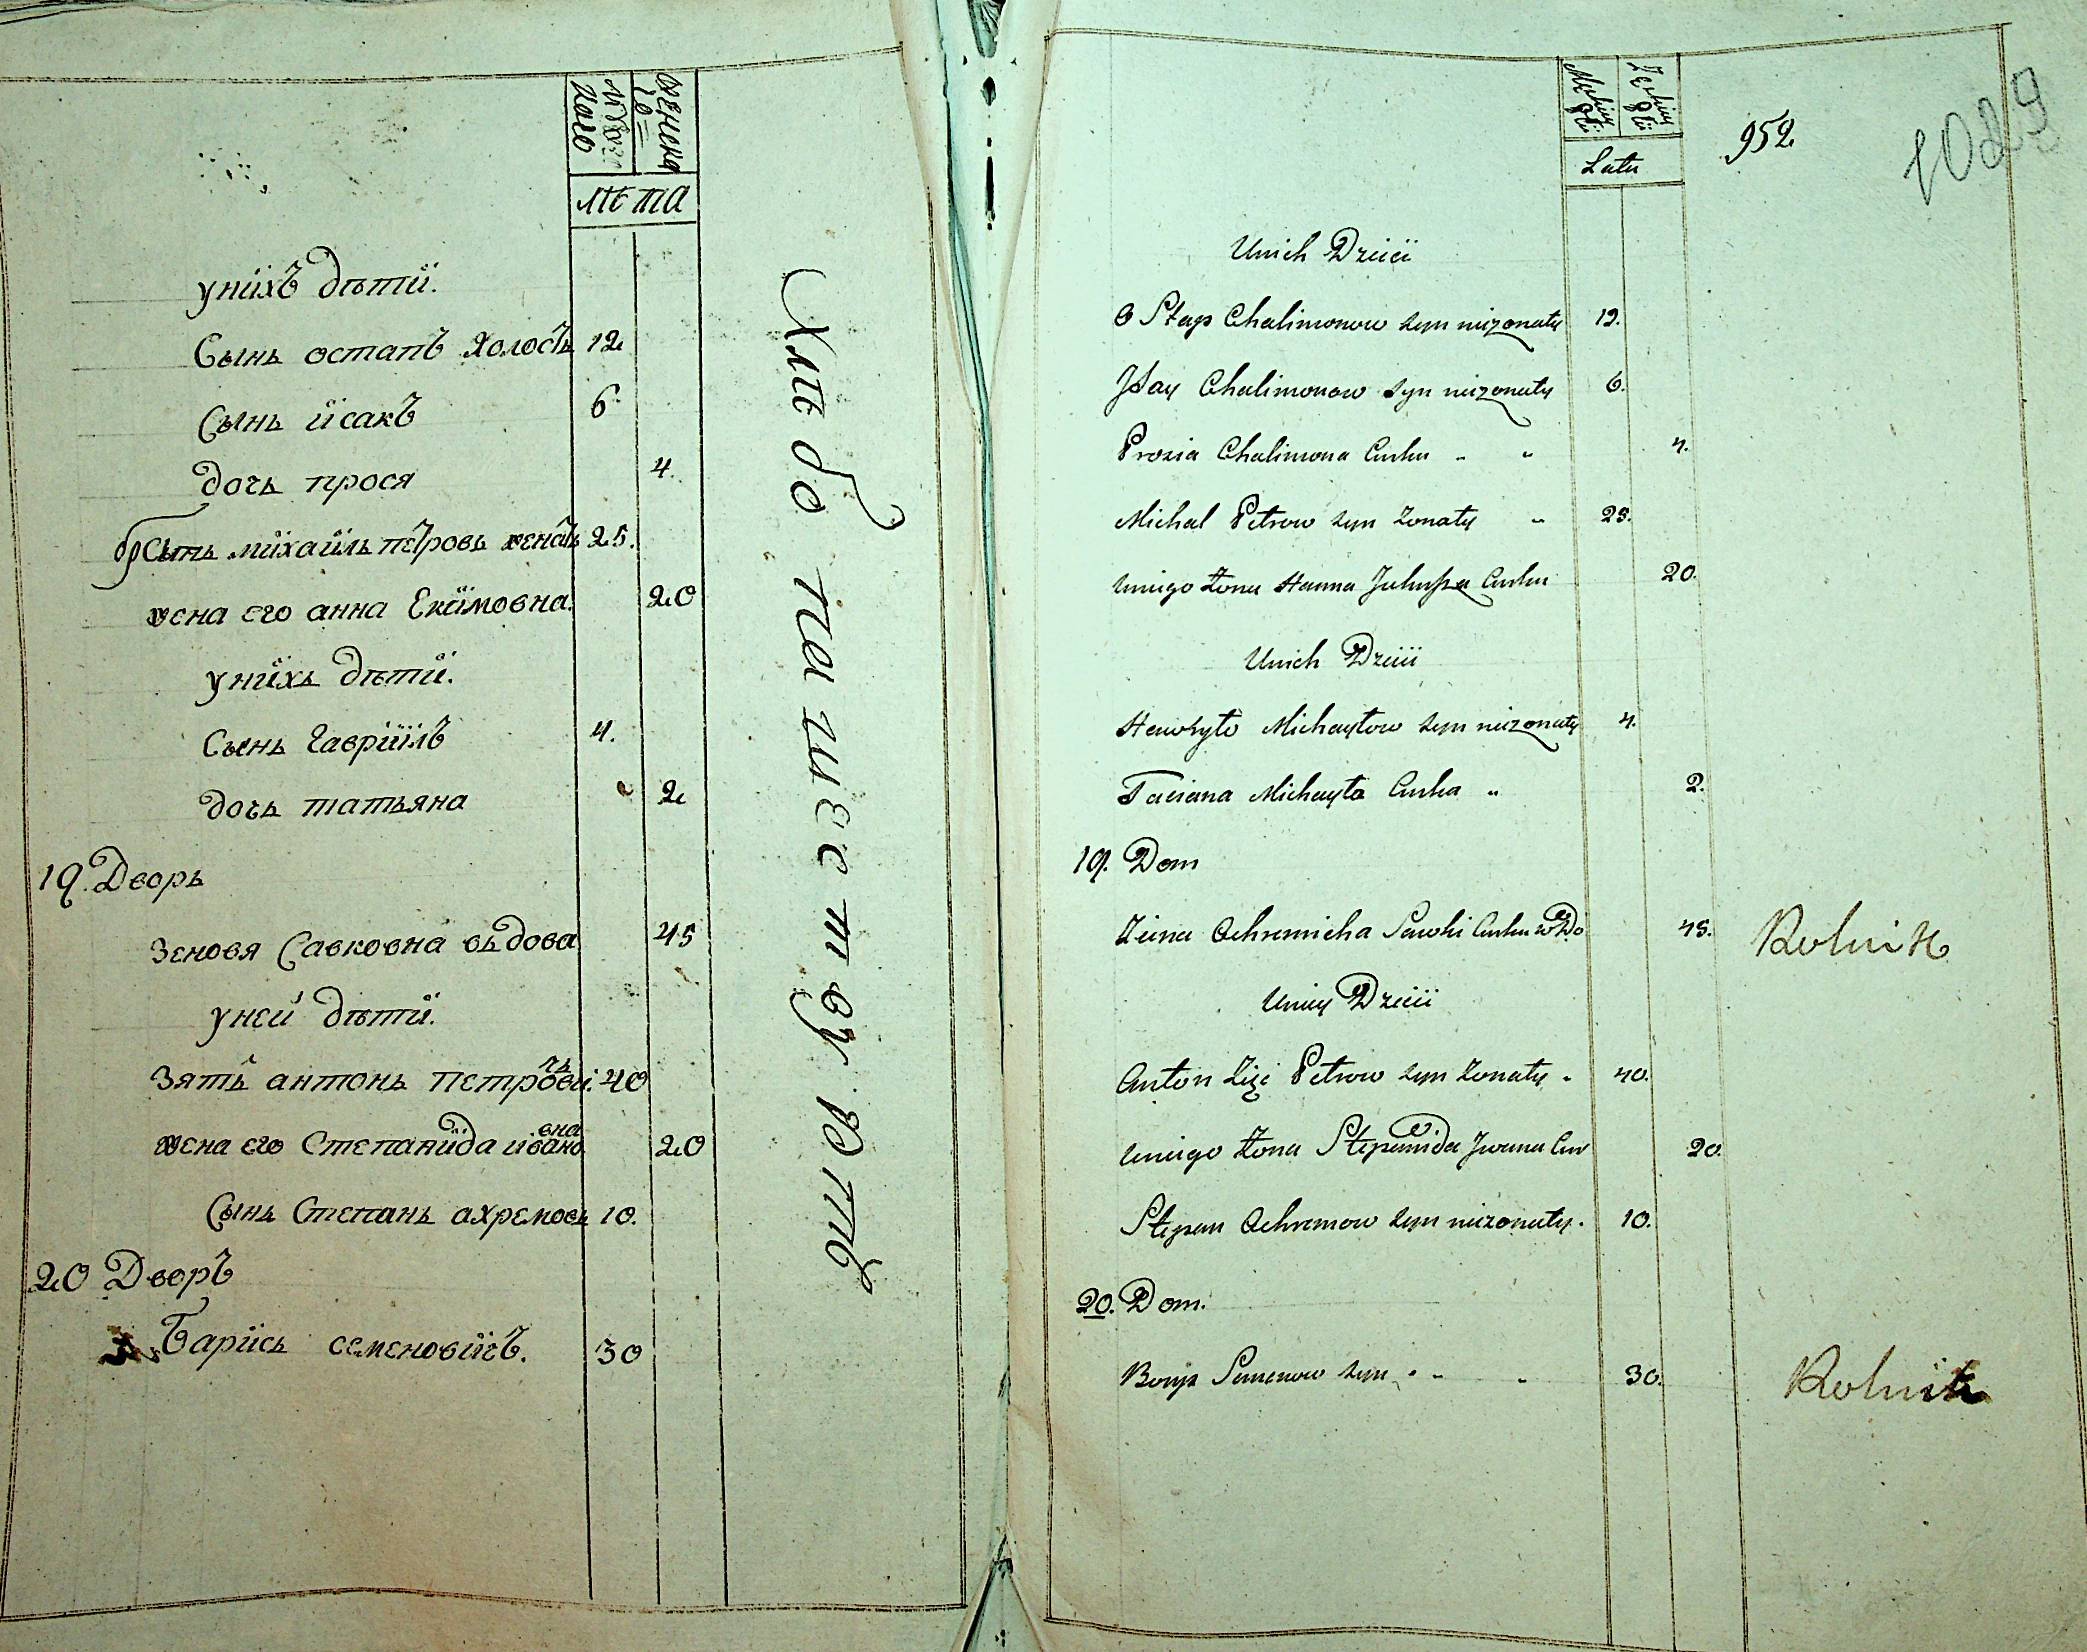 Мужескаго
Женска
го=
лѣта
унiихъ дѣтiи.
Сынь остапъ Холостъ 12
Сынь iисакъ 6
дочь прося 4.
братъ миiхаiиль петровь женатъ 25.
жена его анна Екiимовна 20
унiихь дѣтiи.
Сынь Гаврiиiлъ 4.
дочь татьяна 2
19. Дворь
Зеновя Савковна вьдова 45
уней дѣтiи.
Зять антонь Петровичь 40
жена его Степанiида ивановна 20
Сынь Степань ахремовь 10.
20 Дворъ
Барiись семеновiичъ. 30
Хлѣбопашествуетъ
Latu
952.
1029
Unich Dzieci
Ostap Chalimonow syn niezonaty 12.
Isay Chalimonow syn niezonaty 6.
Prosia Chalimona Curka " " 4.
Michal Petrow syn zonaty " 25.
Uniego zona Hanna Curka 20.
Unich Dzieci
Hawryło Michayłow syn niezonaty 4.
Taciana Michayła Curka " 2.
19. Dom
Zeina Ochremicha Sawki Curka wdo 45. Rolnik
Uniey Dzieci
Anton Zięć Petrow syn zonaty . 40.
Uniego zona Stepanida Jwana Cur 20.
Stepan Ochremow syn niezonaty. 10.
20. Dom.
Borys Semenow syn " " 30. Rolnik